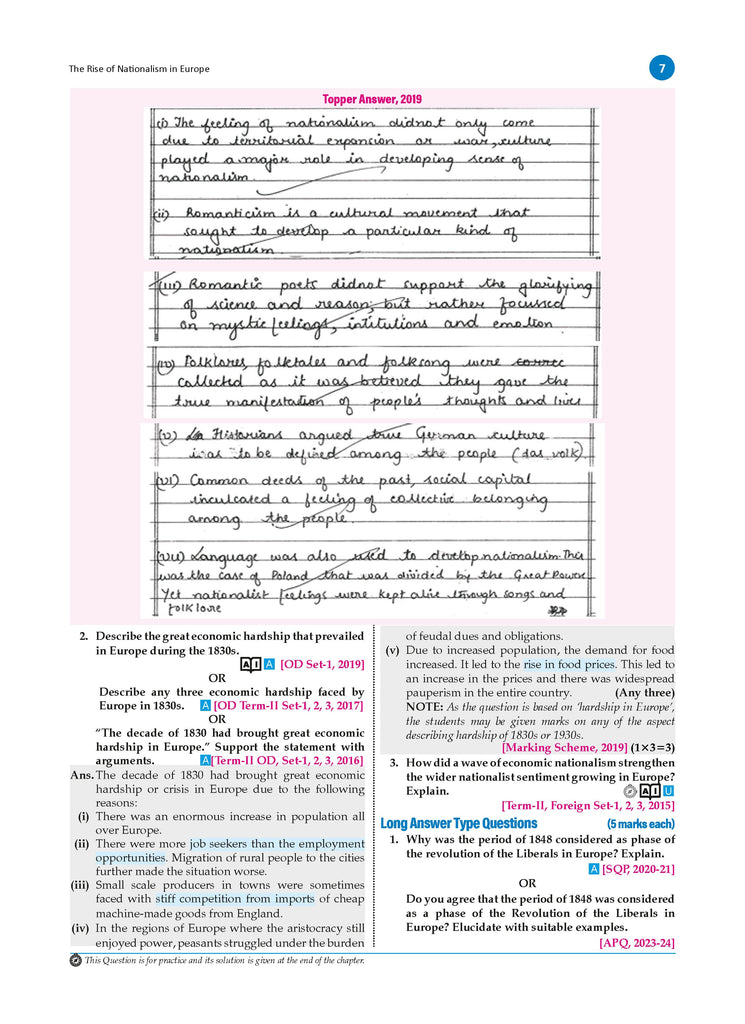 The Rise of Nationalism in Europe
7
Topper Answer, 2019
(i) The feeling of nationalism didnot only come
due to territorial expansion or war, culture
played a major role in developing sense of
nationalism.
(ii) Romanticism is a cultural movement that
sought to develop a particular kind of
nationalism.
(iii) Romantic poets didnot support the glorifying
of science and reason, but rather focussed
on mystic feelings, intitutions and emotion
(iv) Folklores, folktales and folksong were
collected as it was believed they gave the
true manifestation of people's thoughts and lives
(v) Historians argued true German culture
was to be defined among the people (das volk).
(vi) Common deeds of the past, social capital
inculcated a feeling of collective belonging
among the people.
(vii) Language was also used to develop nationalism. This
was the case of Poland that was divided by the Great Power
Yet nationalist feelings were kept alive through songs and
folklore
2. Describe the great economic hardship that prevailed
in Europe during the 1830s.
AI A [OD Set-1, 2019]
OR
Describe any three economic hardship faced by
Europe in 1830s. A [OD Term-II Set-1, 2, 3, 2017]
OR
"The decade of 1830 had brought great economic
hardship in Europe." Support the statement with
arguments. A [Term-II OD, Set-1, 2, 3, 2016]
Ans. The decade of 1830 had brought great economic
hardship or crisis in Europe due to the following
reasons:
(i) There was an enormous increase in population all
over Europe.
(ii) There were more job seekers than the employment
opportunities. Migration of rural people to the cities
further made the situation worse.
(iii) Small scale producers in towns were sometimes
faced with stiff competition from imports of cheap
machine-made goods from England.
(iv) In the regions of Europe where the aristocracy still
enjoyed power, peasants struggled under the burden
of feudal dues and obligations.
(v) Due to increased population, the demand for food
increased. It led to the rise in food prices. This led to
an increase in the prices and there was widespread
pauperism in the entire country. (Any three)
NOTE: As the question is based on 'hardship in Europe',
the students may be given marks on any of the aspect
describing hardship of 1830s or 1930s.
[Marking Scheme, 2019] (1×3=3)
3. How did a wave of economic nationalism strengthen
the wider nationalist sentiment growing in Europe?
Explain. AI U
[Term-II, Foreign Set-1, 2, 3, 2015]
Long Answer Type Questions (5 marks each)
1. Why was the period of 1848 considered as phase of
the revolution of the Liberals in Europe? Explain.
A [SQP, 2020-21]
OR
Do you agree that the period of 1848 was considered
as a phase of the Revolution of the Liberals in
Europe? Elucidate with suitable examples.
[APQ, 2023-24]
This Question is for practice and its solution is given at the end of the chapter.